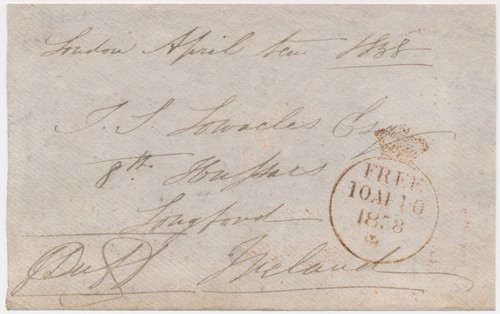 London April ten 1838
T. S. Esq
8th Hussars
Longford
Ireland
FREE
10 AP 10
1838
E